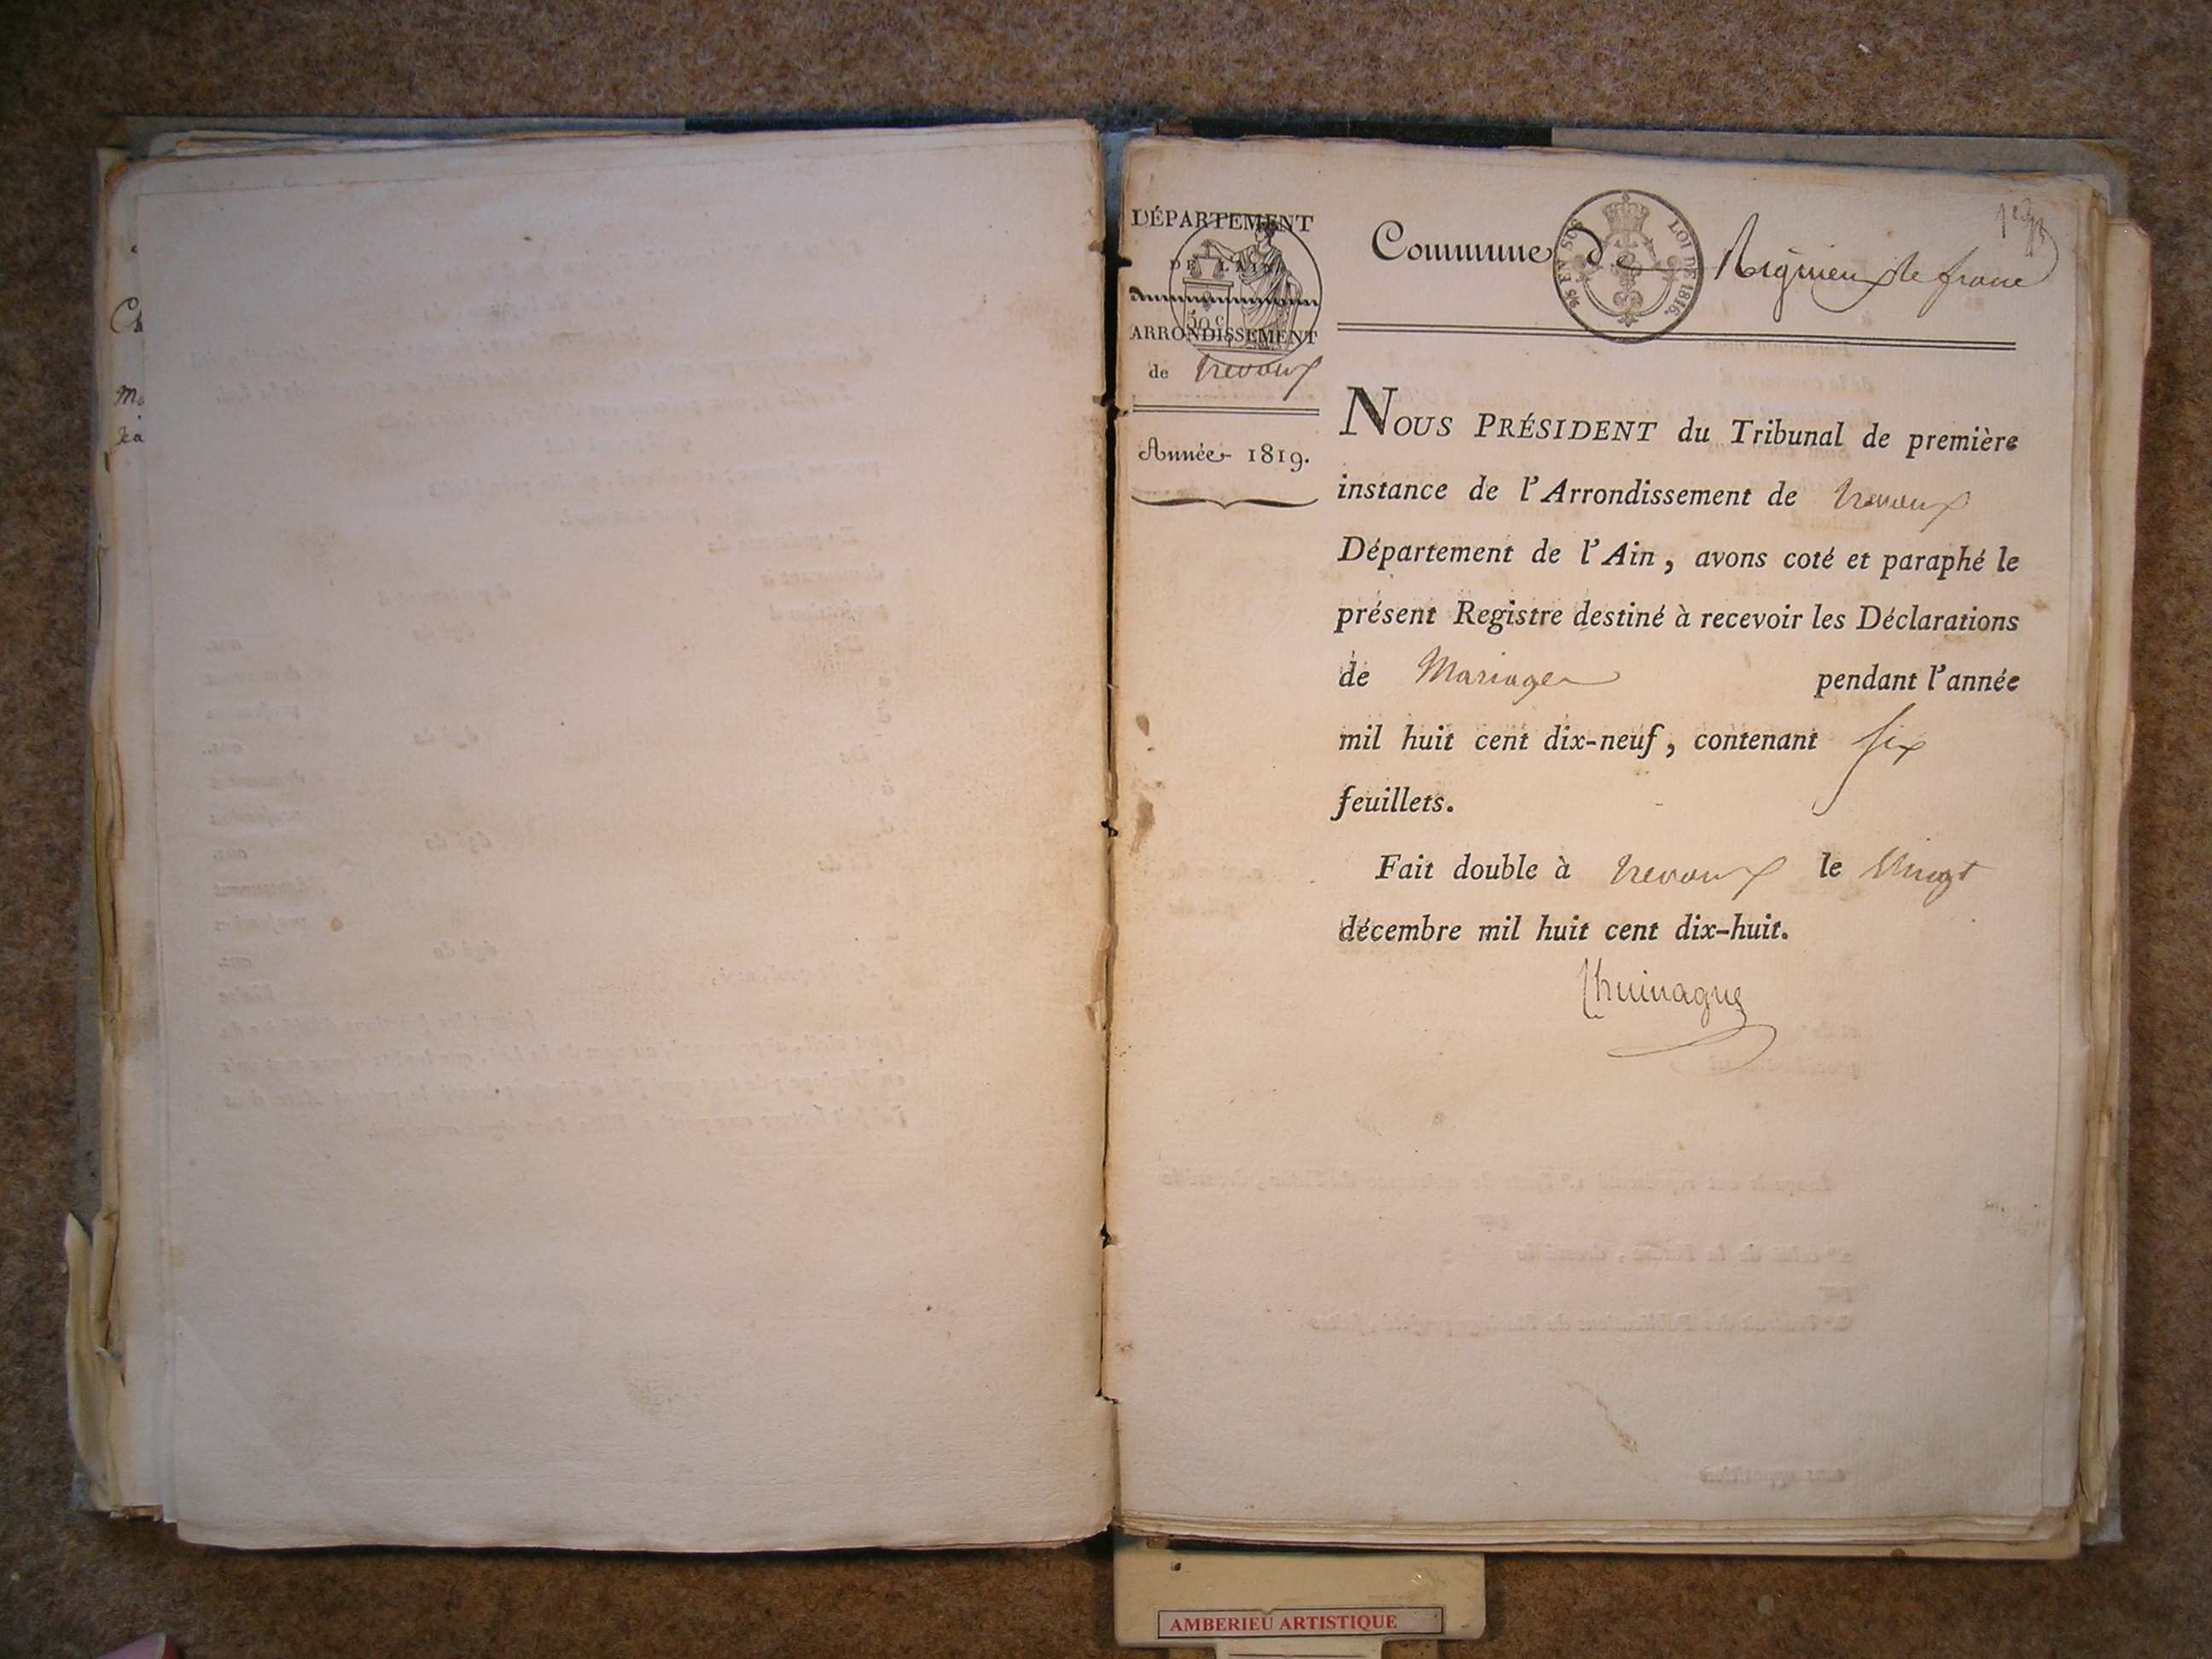 DÉPARTEMENT
DE L'AIN
ARRONDISSEMENT
de Trevoux
Année 1819.
50 C
Commune de Rignieux le franc
LOI DE 1816.
NOUS PRÉSIDENT du Tribunal de première
instance de l'Arrondissement de Trevoux
Département de l'Ain, avons coté et paraphé le
présent Registre destiné à recevoir les Déclarations
de Mariages pendant l'année
mil huit cent dix-neuf, contenant six
feuillets.
Fait double à Trevoux le Vingt
décembre mil huit cent dix-huit.
AMBERIEU ARTISTIQUE